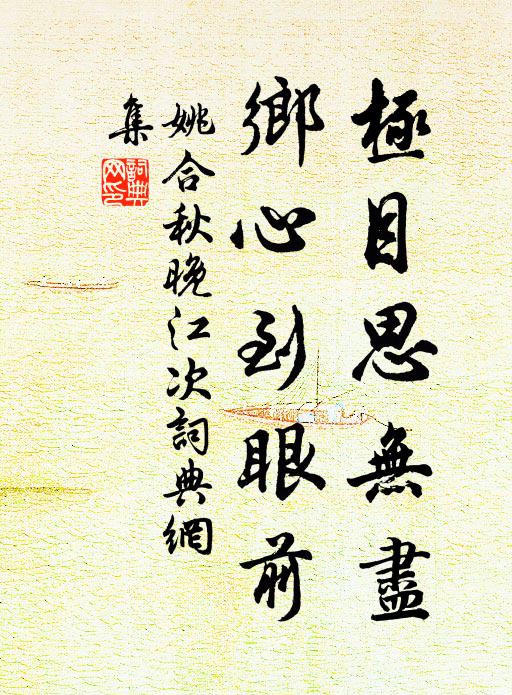 極目思無盡
鄉心到眼前
姚合秋晚江次詞典網
集
詞典網印